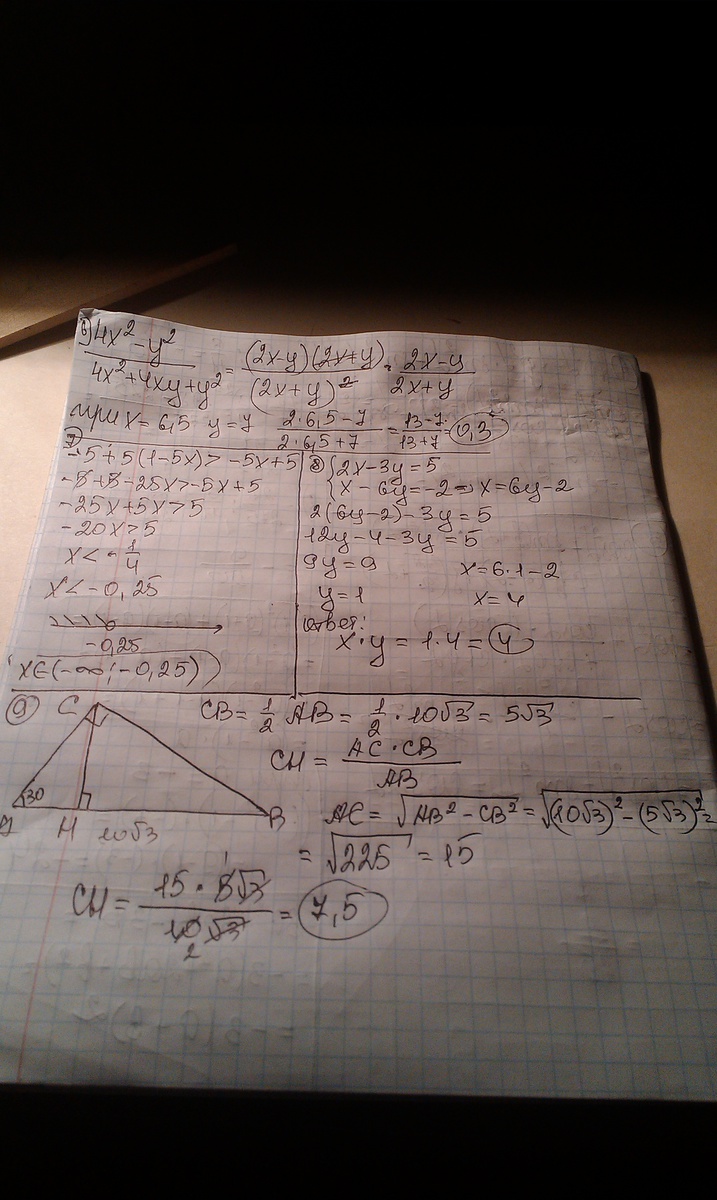 6) (4x²-y²)/(4x²+4xy+y²) = ((2x-y)(2x+y))/((2x+y)²) = (2x-y)/(2x+y)
при x = 6,5 y = 7 (2·6,5-7)/(2·6,5+7) = (13-7)/(13+7) = 0,3
7)
-5+5(1-5x)>-5x+5
-5+5-25x>-5x+5
-25x+5x>5
-20x>5
x<-1/4
x<-0,25
-0,25
x∈(-∞;-0,25)
8) {2x-3y=5
{x-6y=-2 => x=6y-2
2(6y-2)-3y=5
12y-4-3y=5
9y=9 x=6·1-2
y=1 x=4
ответ:
x·y = 1·4 = 4
9) C CB = 1/2 AB = 1/2 · 10√3 = 5√3
CH = (AC·CB)/AB
30
A H 10√3 B AC = √(AB²-CB²) = √((10√3)²-(5√3)²) =
= √225 = 15
CH = (15·5√3)/(10√3) = 7,5
1
2